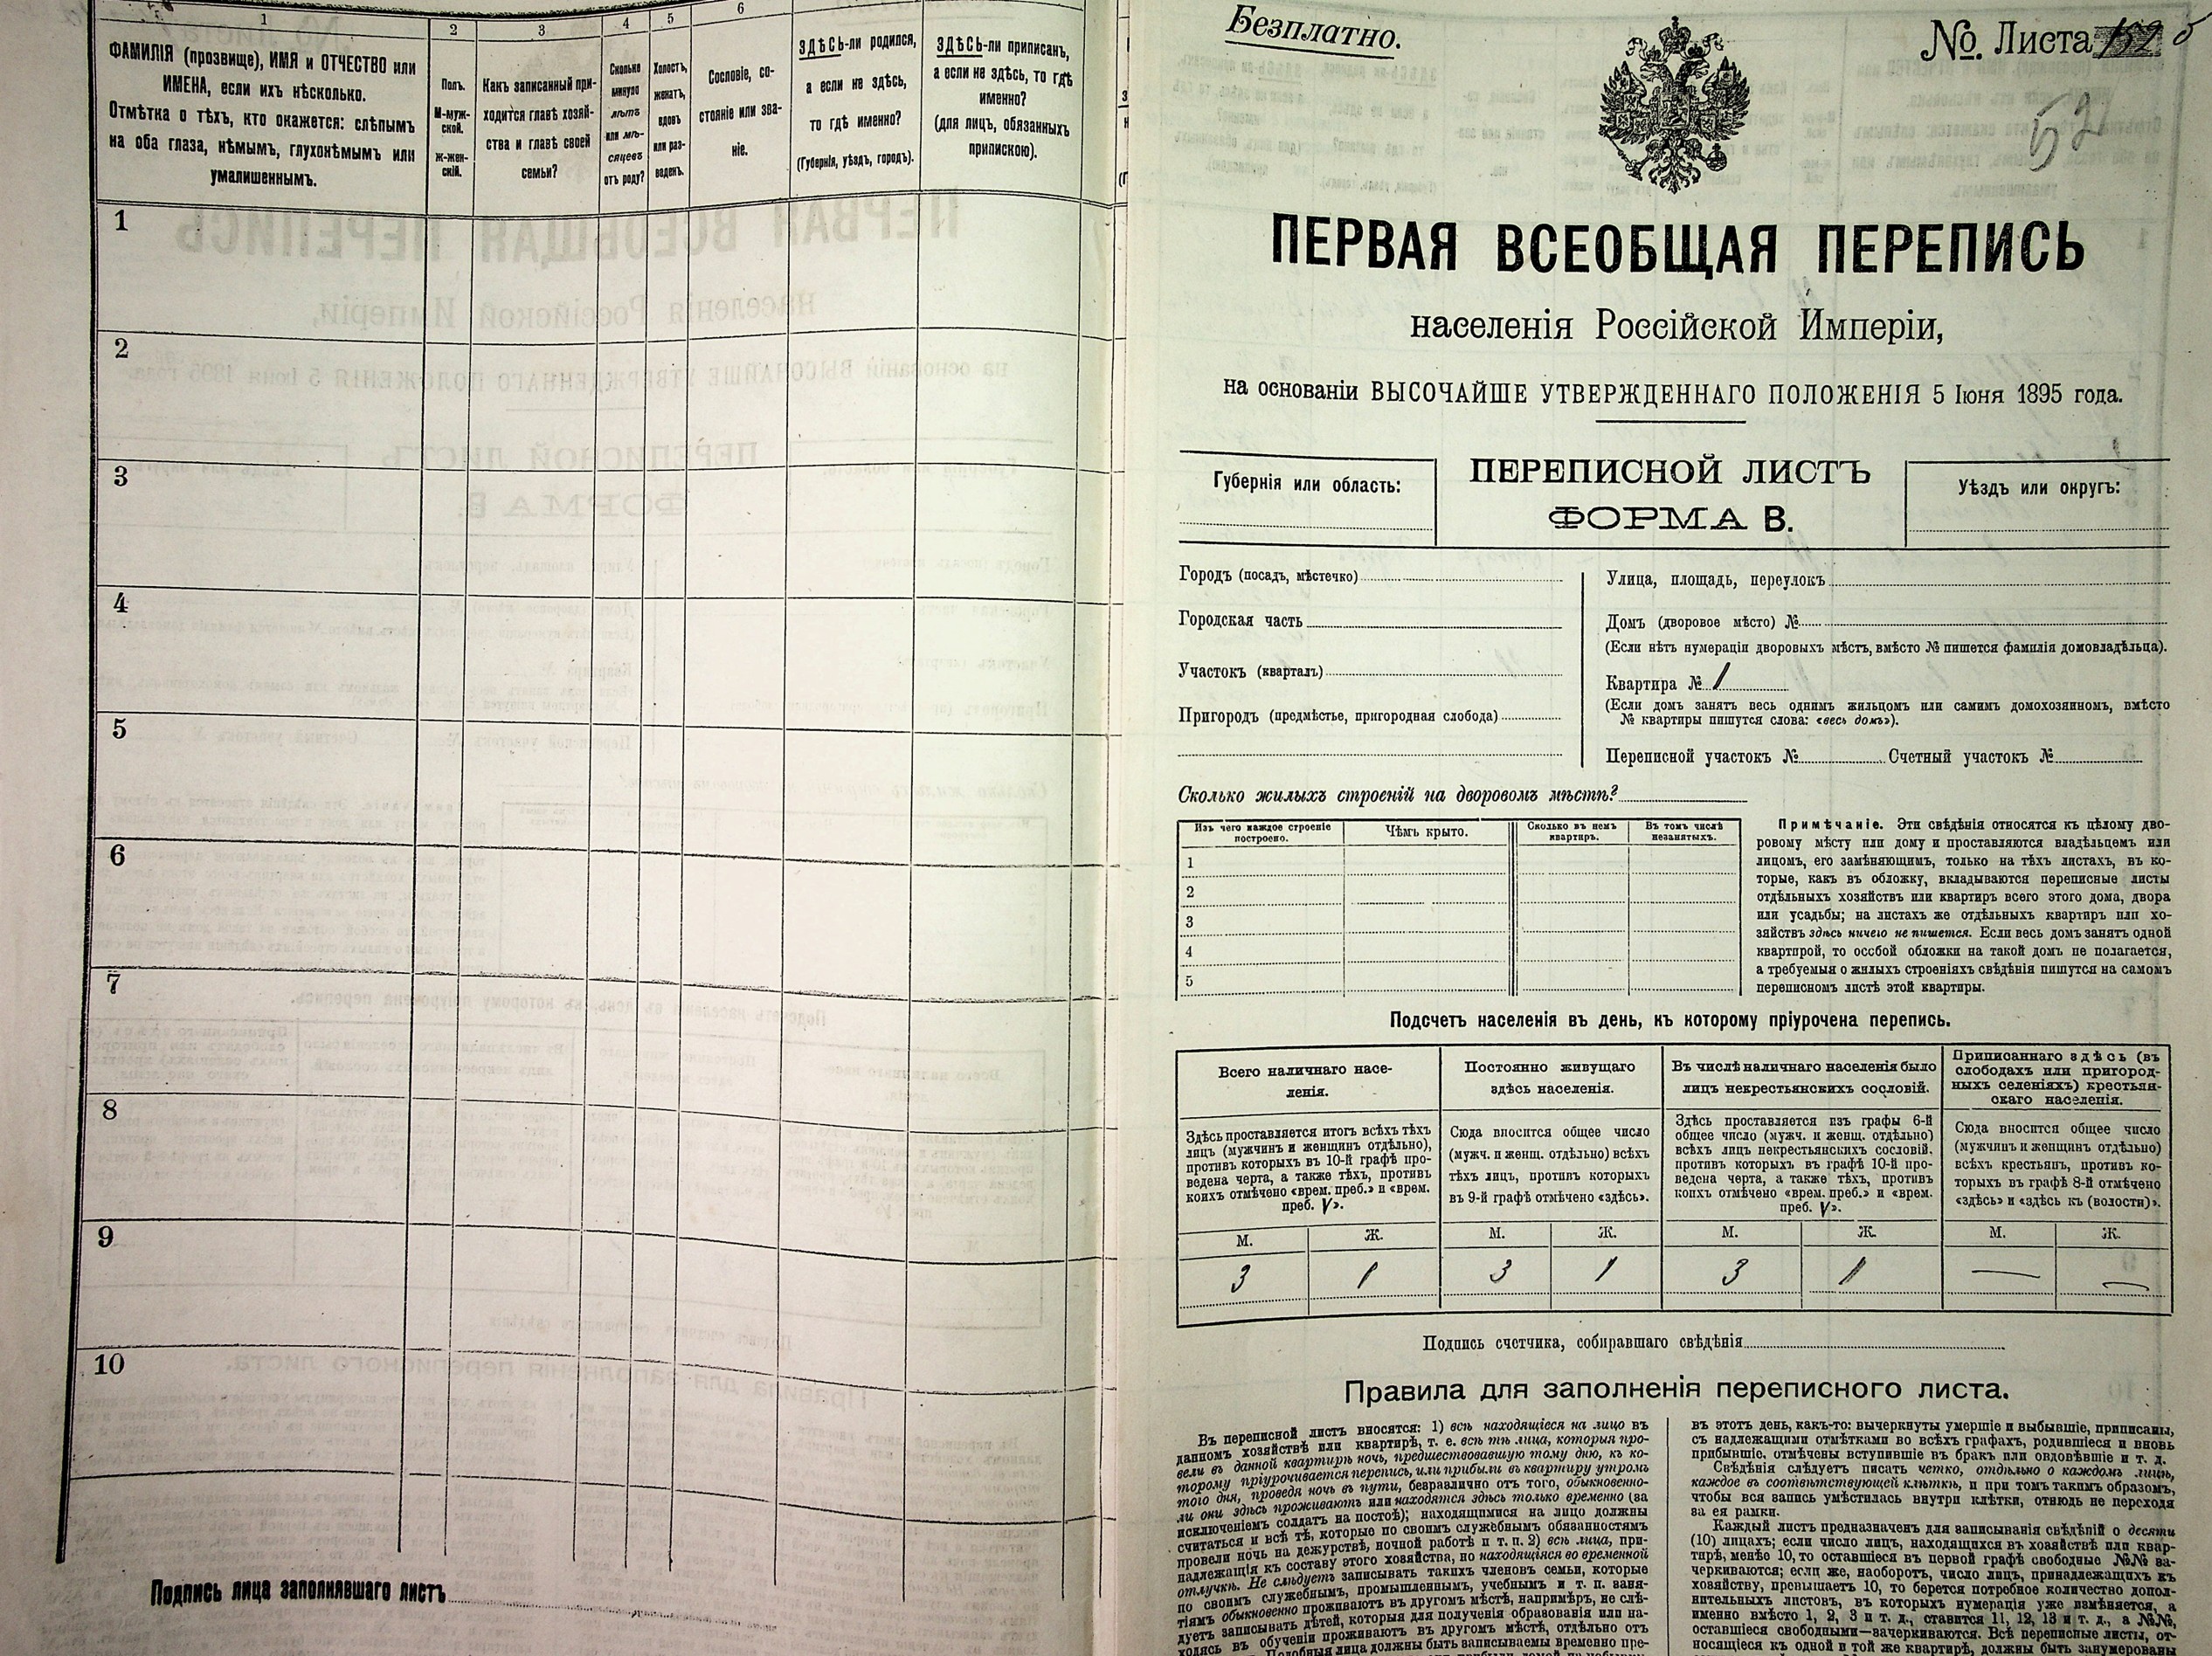 1
2
3
4
5
6
ФАМИЛІЯ (прозвище), ИМЯ и ОТЧЕСТВО или
ИМЕНА, если ихъ нѣсколько.
Отмѣтка о тѣхъ, кто окажется: слѣпымъ
на оба глаза, нѣмымъ, глухонѣмымъ или
умалишеннымъ.
Полъ.
М-муж-
ской.
Ж-жен-
скій.
Какъ записанный при-
ходится главѣ хозяй-
ства и главѣ своей
семьи?
Сколько
минуло
лѣтъ
или мѣ-
сяцевъ
отъ роду?
Холостъ,
женатъ,
вдовъ
или раз-
веденъ.
Сословіе, со-
стояніе или зва-
ніе.
ЗДѢСЬ-ли родился,
а если не здѣсь,
то гдѣ именно?
(Губернія, уѣздъ, городъ).
ЗДѢСЬ-ли приписанъ,
а если не здѣсь, то гдѣ
именно?
(для лицъ, обязанныхъ
припискою).
1
2
3
4
5
6
7
8
9
10
Подпись лица заполнявшаго листъ
Безплатно.
№ Листа
52
ПЕРВАЯ ВСЕОБЩАЯ ПЕРЕПИСЬ
населенія Россійской Имперіи,
на основаніи ВЫСОЧАЙШЕ УТВЕРЖДЕННАГО ПОЛОЖЕНІЯ 5 Іюня 1895 года.
Губернія или область:
ПЕРЕПИСНОЙ ЛИСТЪ
ФОРМА В.
Уѣздъ или округъ:
Городъ (посадъ, мѣстечко)
Городская часть
Участокъ (кварталъ)
Пригородъ (предмѣстье, пригородная слобода)
Улица, площадь, переулокъ
Домъ (дворовое мѣсто) №
(Если нѣтъ нумераціи дворовыхъ мѣстъ, вмѣсто № пишется фамилія домовладѣльца).
Квартира № 1
(Если домъ занятъ весь однимъ жильцомъ или самимъ домохозяиномъ, вмѣсто
№ квартиры пишутся слова: «весь домъ»).
Переписной участокъ № Счетный участокъ №
Сколько жилыхъ строеній на дворовомъ мѣстѣ?
Изъ чего каждое строеніе
построено.
Чѣмъ крыто.
Сколько въ немъ
квартиръ.
Въ томъ числѣ
незанятыхъ.
1
2
3
4
5
Примѣчаніе. Эти свѣдѣнія относятся къ цѣлому дво-
ровому мѣсту или дому и проставляются владѣльцемъ или
лицомъ, его замѣняющимъ, только на тѣхъ листахъ, въ ко-
торые, какъ въ обложку, вкладываются переписные листы
отдѣльныхъ хозяйствъ или квартиръ всего этого дома, двора
или усадьбы; на листахъ же отдѣльныхъ квартиръ или хо-
зяйствъ здѣсь ничего не пишется. Если весь домъ занятъ одной
квартирой, то особой обложки на такой домъ не полагается,
а требуемыя о жилыхъ строеніяхъ свѣдѣнія пишутся на самомъ
переписномъ листѣ этой квартиры.
Подсчетъ населенія въ день, къ которому пріурочена перепись.
Всего наличнаго насе-
ленія.
Постоянно живущаго
здѣсь населенія.
Въ числѣ наличнаго населенія было
лицъ некрестьянскихъ сословій.
Приписаннаго здѣсь (въ
слободахъ или пригород-
ныхъ селеніяхъ) крестьян-
скаго населенія.
Здѣсь проставляется итогъ всѣхъ тѣхъ
лицъ (мужчинъ и женщинъ отдѣльно),
противъ которыхъ въ 10-й графѣ про-
ведена черта, а также тѣхъ, противъ
коихъ отмѣчено «врем. преб.» и «врем.
преб. V».
Сюда вносится общее число
(мужч. и женщ. отдѣльно) всѣхъ
тѣхъ лицъ, противъ которыхъ
въ 9-й графѣ отмѣчено «здѣсь».
Здѣсь проставляется изъ графы 6-й
общее число (мужч. и женщ. отдѣльно)
всѣхъ лицъ некрестьянскихъ сословій,
противъ которыхъ въ графѣ 10-й про-
ведена черта, а также тѣхъ, противъ
коихъ отмѣчено «врем. преб.» и «врем.
преб. V».
Сюда вносится общее число
(мужчинъ и женщинъ отдѣльно)
всѣхъ крестьянъ, противъ ко-
торыхъ въ графѣ 8-й отмѣчено
«здѣсь» и «здѣсь къ (волости)».
М. Ж. М. Ж. М. Ж. М. Ж.
3 1 3 1 3 1 — —
Подпись счетчика, собиравшаго свѣдѣнія
Правила для заполненія переписного листа.
Въ переписной листъ вносятся: 1) всѣ находящіеся на лицо въ
данномъ хозяйствѣ или квартирѣ, т. е. всѣ тѣ лица, которыя про-
вели въ данной квартирѣ ночь, предшествовавшую тому дню, къ ко-
торому пріурочивается перепись, или прибыли въ квартиру утромъ
того дня, проведя ночь въ пути, безразлично отъ того, обыкновенно-
ли они здѣсь проживаютъ или находятся здѣсь только временно (за
исключеніемъ солдатъ на постоѣ); находящимися на лицо должны
считаться и всѣ тѣ, которые по своимъ служебнымъ обязанностямъ
провели ночь на дежурствѣ, ночной работѣ и т. п. 2) всѣ лица, при-
надлежащія къ составу этого хозяйства, но находящіяся во временной
отлучкѣ. Не слѣдуетъ записывать такихъ членовъ семьи, которые
по своимъ служебнымъ, промышленнымъ, учебнымъ и т. п. заня-
тіямъ обыкновенно проживаютъ въ другомъ мѣстѣ, напримѣръ, не слѣ-
дуетъ записывать дѣтей, которыя для полученія образованія или на-
ходясь въ обученіи проживаютъ въ другомъ мѣстѣ, отдѣльно отъ
въ этотъ день, какъ-то: вычеркнуты умершіе и выбывшіе, приписаны,
съ надлежащими отмѣтками во всѣхъ графахъ, родившіеся и вновь
прибывшіе, отмѣчены вступившіе въ бракъ или овдовѣвшіе и т. д.
Свѣдѣнія слѣдуетъ писать четко, отдѣльно о каждомъ лицѣ,
каждое въ соотвѣтствующей клѣткѣ, и при томъ такимъ образомъ,
чтобы вся запись умѣстилась внутри клѣтки, отнюдь не переходя
за ея рамки.
Каждый листъ предназначенъ для записыванія свѣдѣній о десяти
(10) лицахъ; если число лицъ, находящихся въ хозяйствѣ или квар-
тирѣ, менѣе 10, то оставшіеся въ первой графѣ свободные №№ за-
черкиваются; если же, наоборотъ, число лицъ, принадлежащихъ къ
хозяйству, превышаетъ 10, то берется потребное количество допол-
нительныхъ листовъ, въ которыхъ нумерація уже измѣняется, а
именно вмѣсто 1, 2, 3 и т. д., ставится 11, 12, 13 и т. д., а №№,
оставшіеся свободными—зачеркиваются. Всѣ переписные листы, от-
носящіеся къ одной и той же квартирѣ, должны быть занумерованы